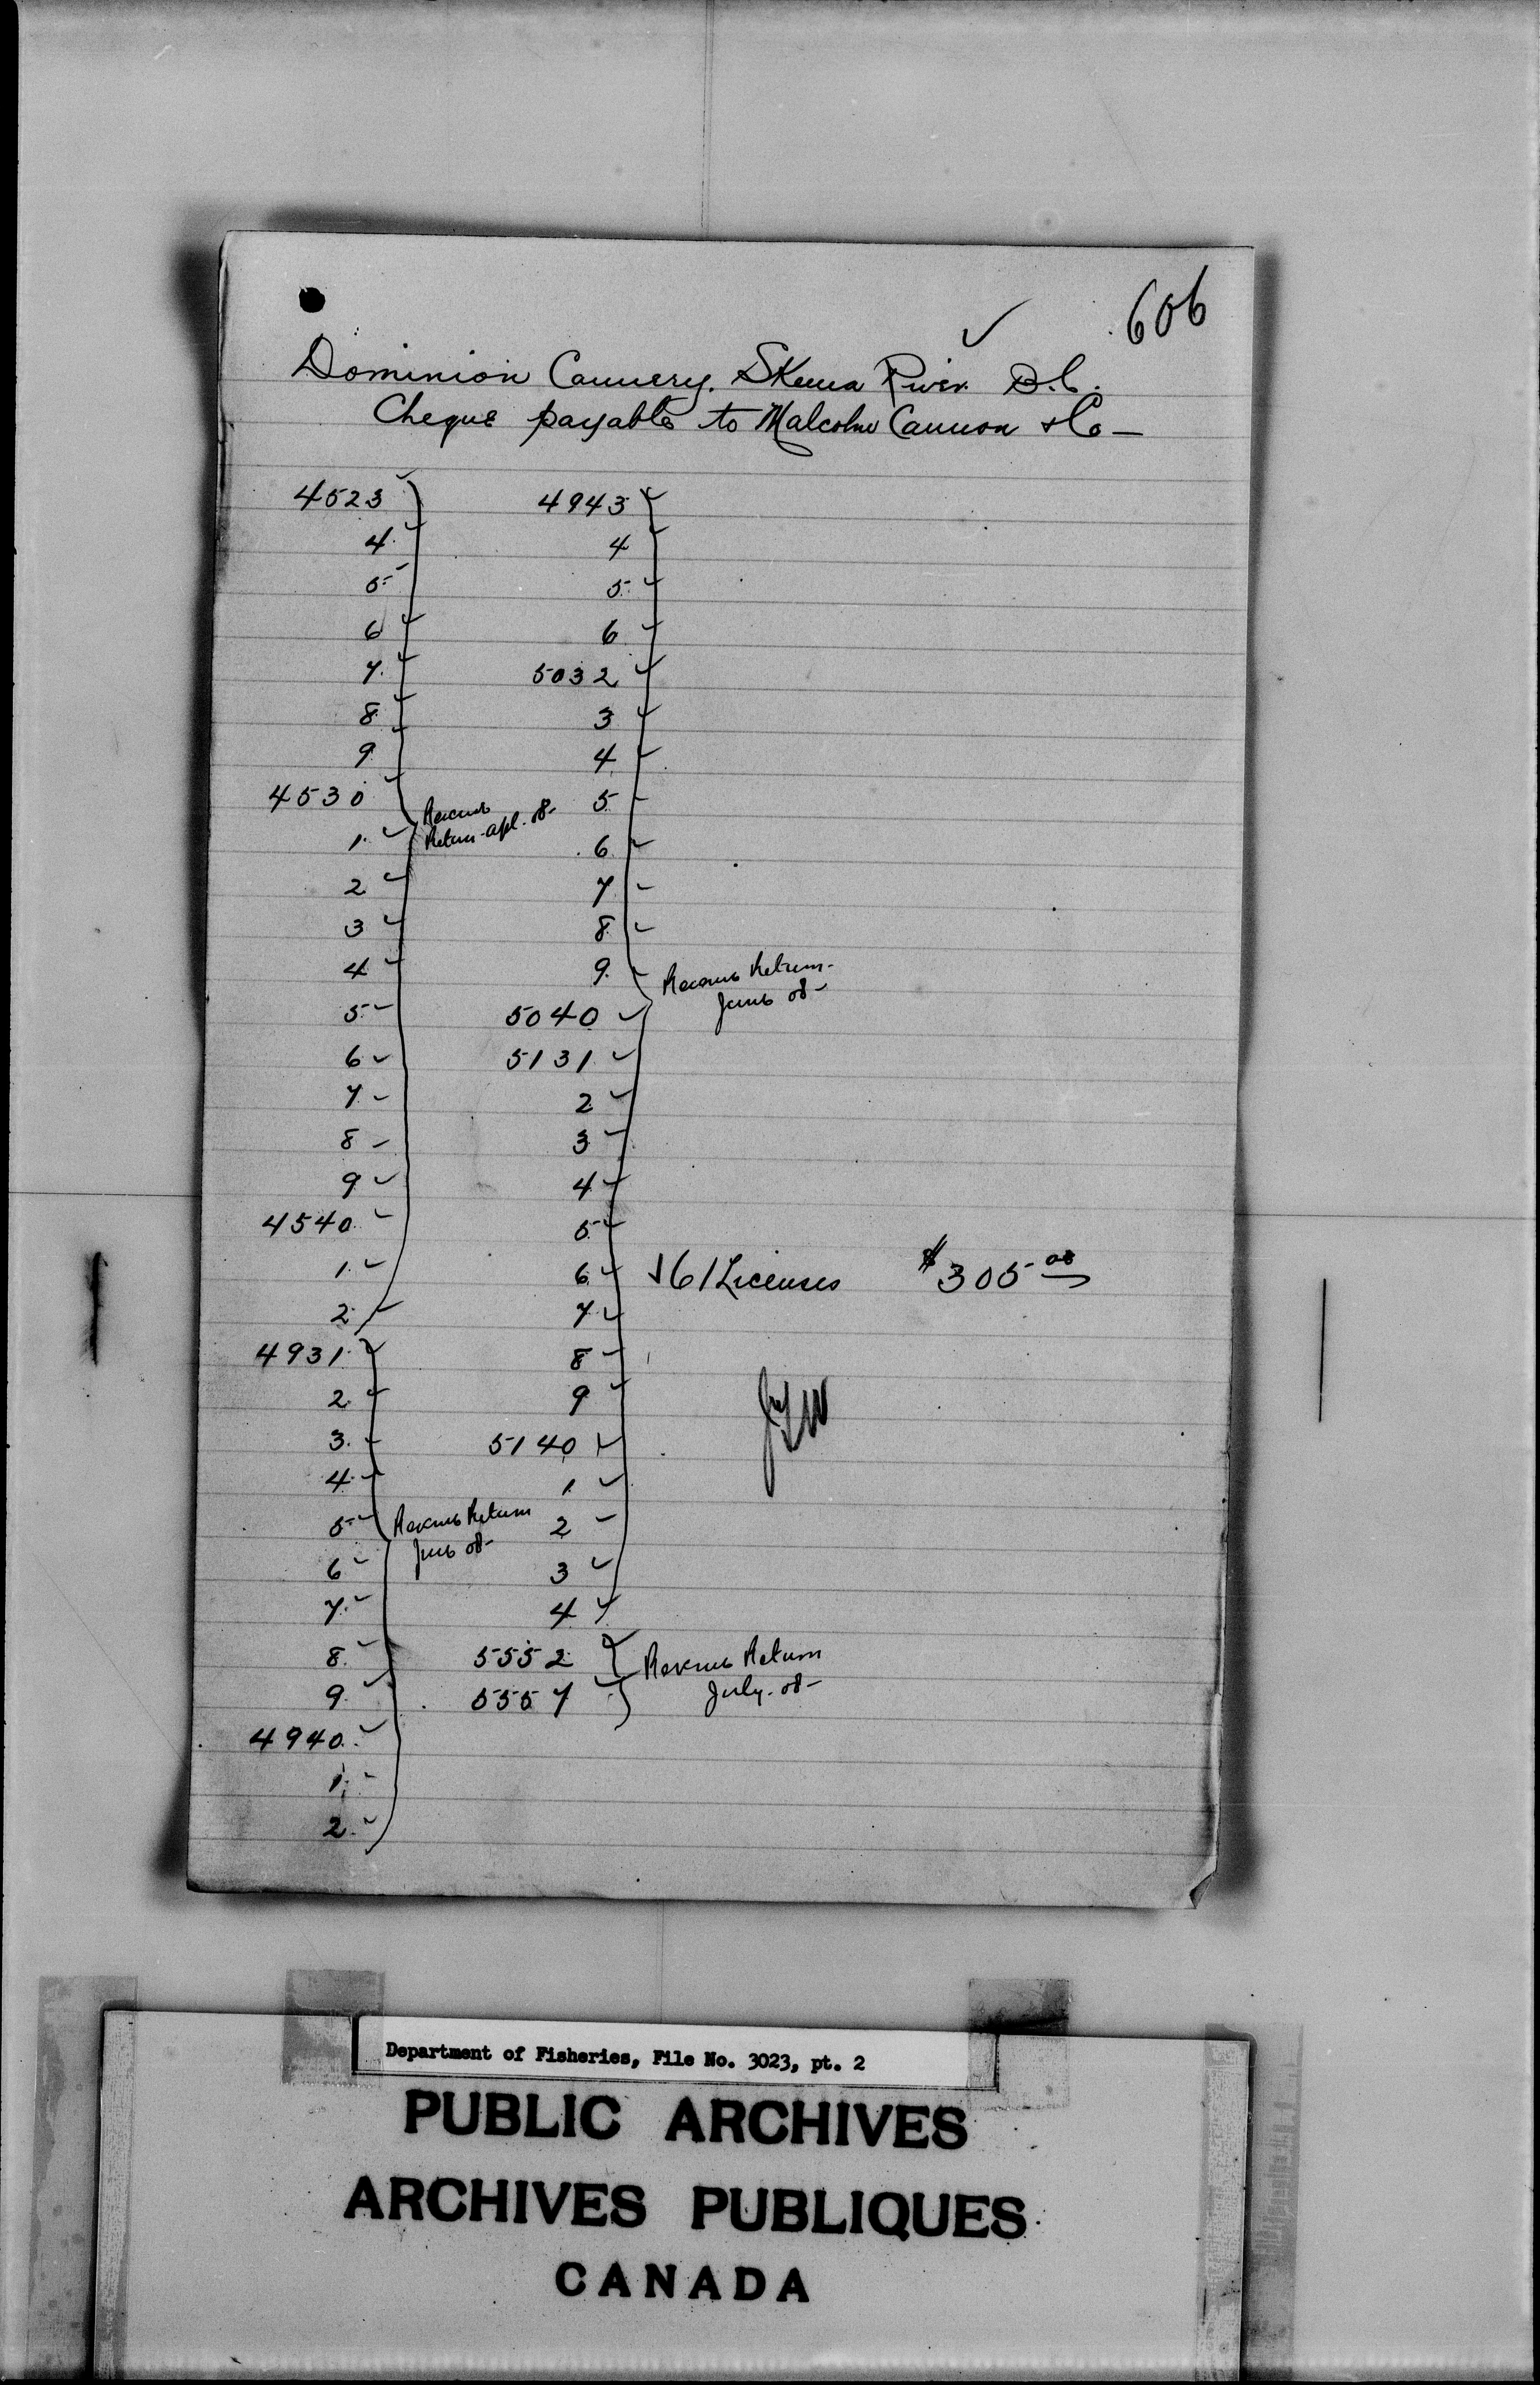 606
Dominion Cannery. Skeena River B.C.
Cheque payable to Malcolm Cannon & Co —
4523
4
5
6
7
8
9
4530
1
2
3
4
5
6
7
8
9
4540
1
2
Revenue
Return apl. 08-
4931
2
3
4
5
6
7
8
9
4940
1
2
Revenue Return
June 08-
4943
4
5
6
5032
3
4
5
6
7
8
9
5040
5131
2
3
4
5
6
7
8
9
5140
1
2
3
4
Revenue Return-
June 08-
5552
5557
Revenue Return
July. 08-
61 Licenses $305 00
Department of Fisheries, File No. 3023, pt. 2
PUBLIC ARCHIVES
ARCHIVES PUBLIQUES
CANADA